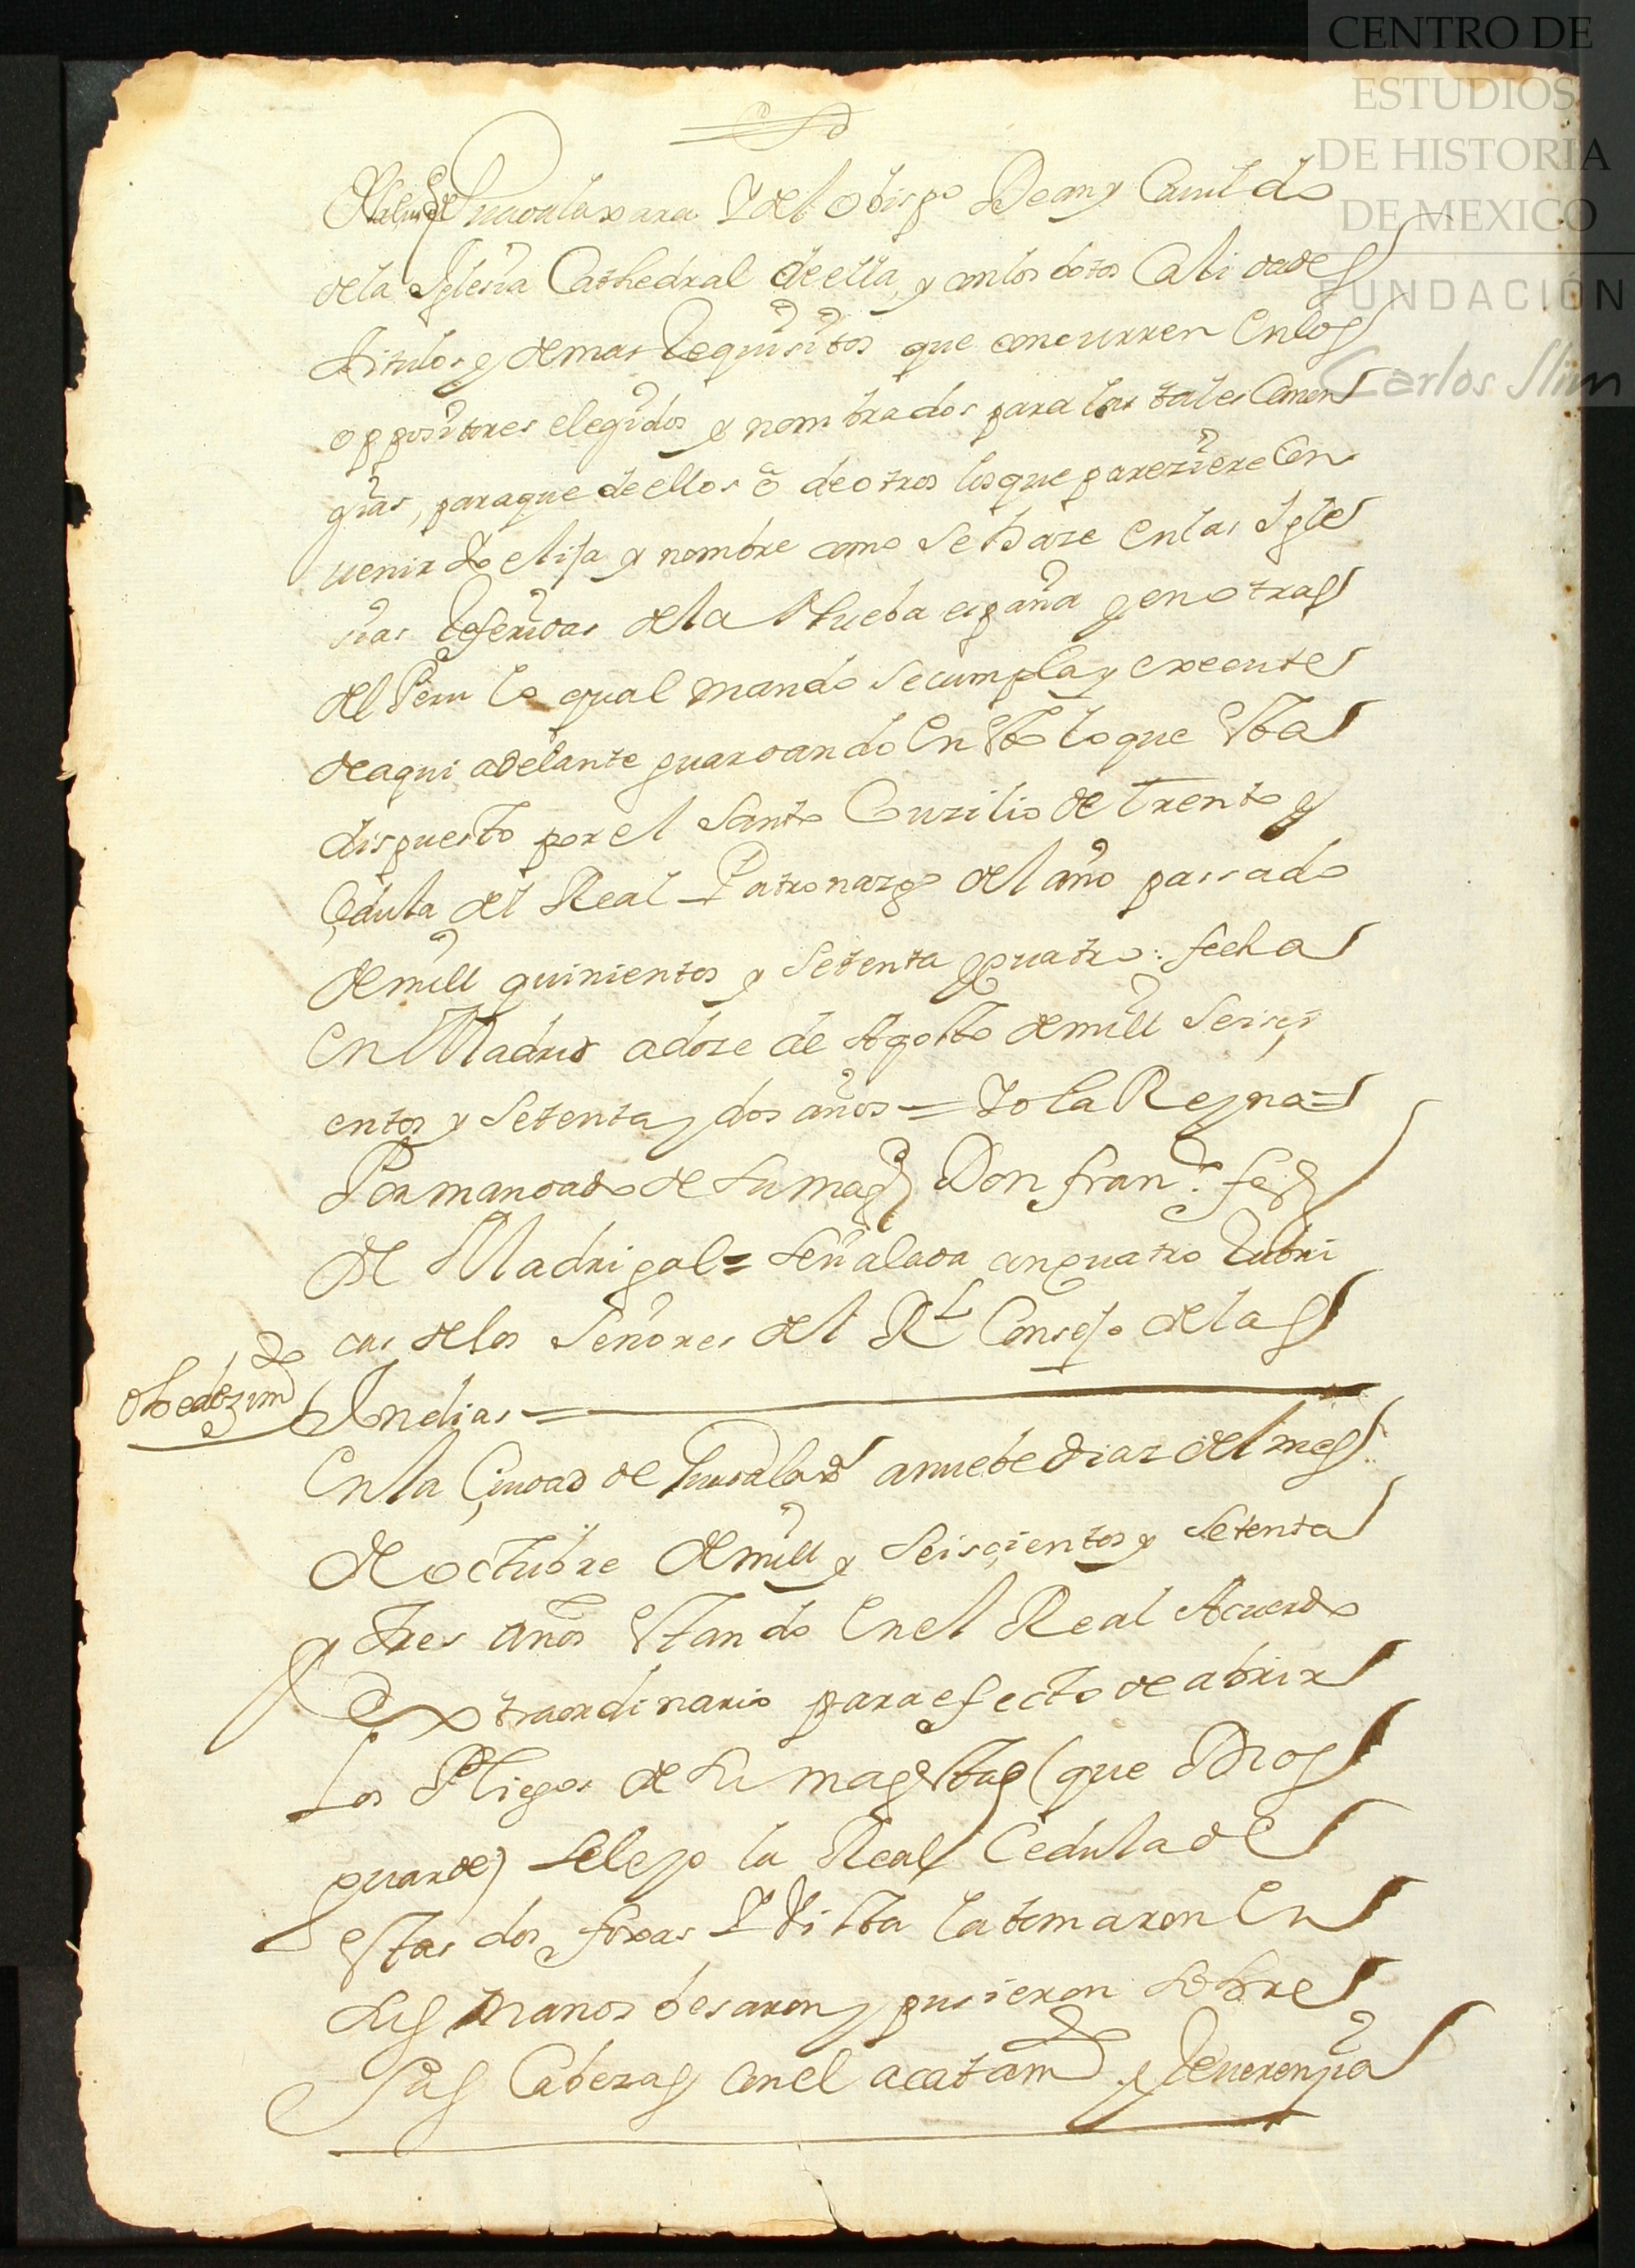 CENTRO DE
ESTUDIOS
DE HISTORIA
DE MEXICO
FUNDACIÓN
Carlos Slim
Guadalaxara Y del obispo Dean y Cauildo
dela Iglesia Cathedral de ella, y con los botos Calidades
titulos y demas Requisitos que concurren en los
oppositores elegidos y nombrados para las tales Canon
gias, para que de ellos ô de otros los que pareziere Con
uenir Yo elija y nombre como se haze en las Igle
sias Referidas de la Nueba españa y en otras
del Peru lo qual mando se cumpla y execute
de aqui adelante guardando en esto lo que esta
dispuesto por el Santo Conzilio de Trento y
Çedula del Real Patronazgo del año passado
de mill quinientos y setenta y quatro: fecha
en Madrid a doze de Agosto de mill seisçi
entos y setenta y dos años = Yo la Reyna =
Por mandado de su mag.d Don fran.co fer.z
de Madrigal = señalada con quatro Rubri
cas de los Señores del R.l Consejo de las
obedezim.to
Indias =
En la Çiudad de Guadalax.a a nuebe dias del mes
de octubre de mill y seisçientos y setenta
y tres años estando en el Real Acuerdo
Extraordinario para efecto de abrir
los Pliegos de su magestad (que Dios
guarde) se leyo la Real Cedula de
estas dos foxas Y Vista la tomaron en
sus manos besaron y pusieron sobre
sus Cabezas con el acatam.to y Reuerençia